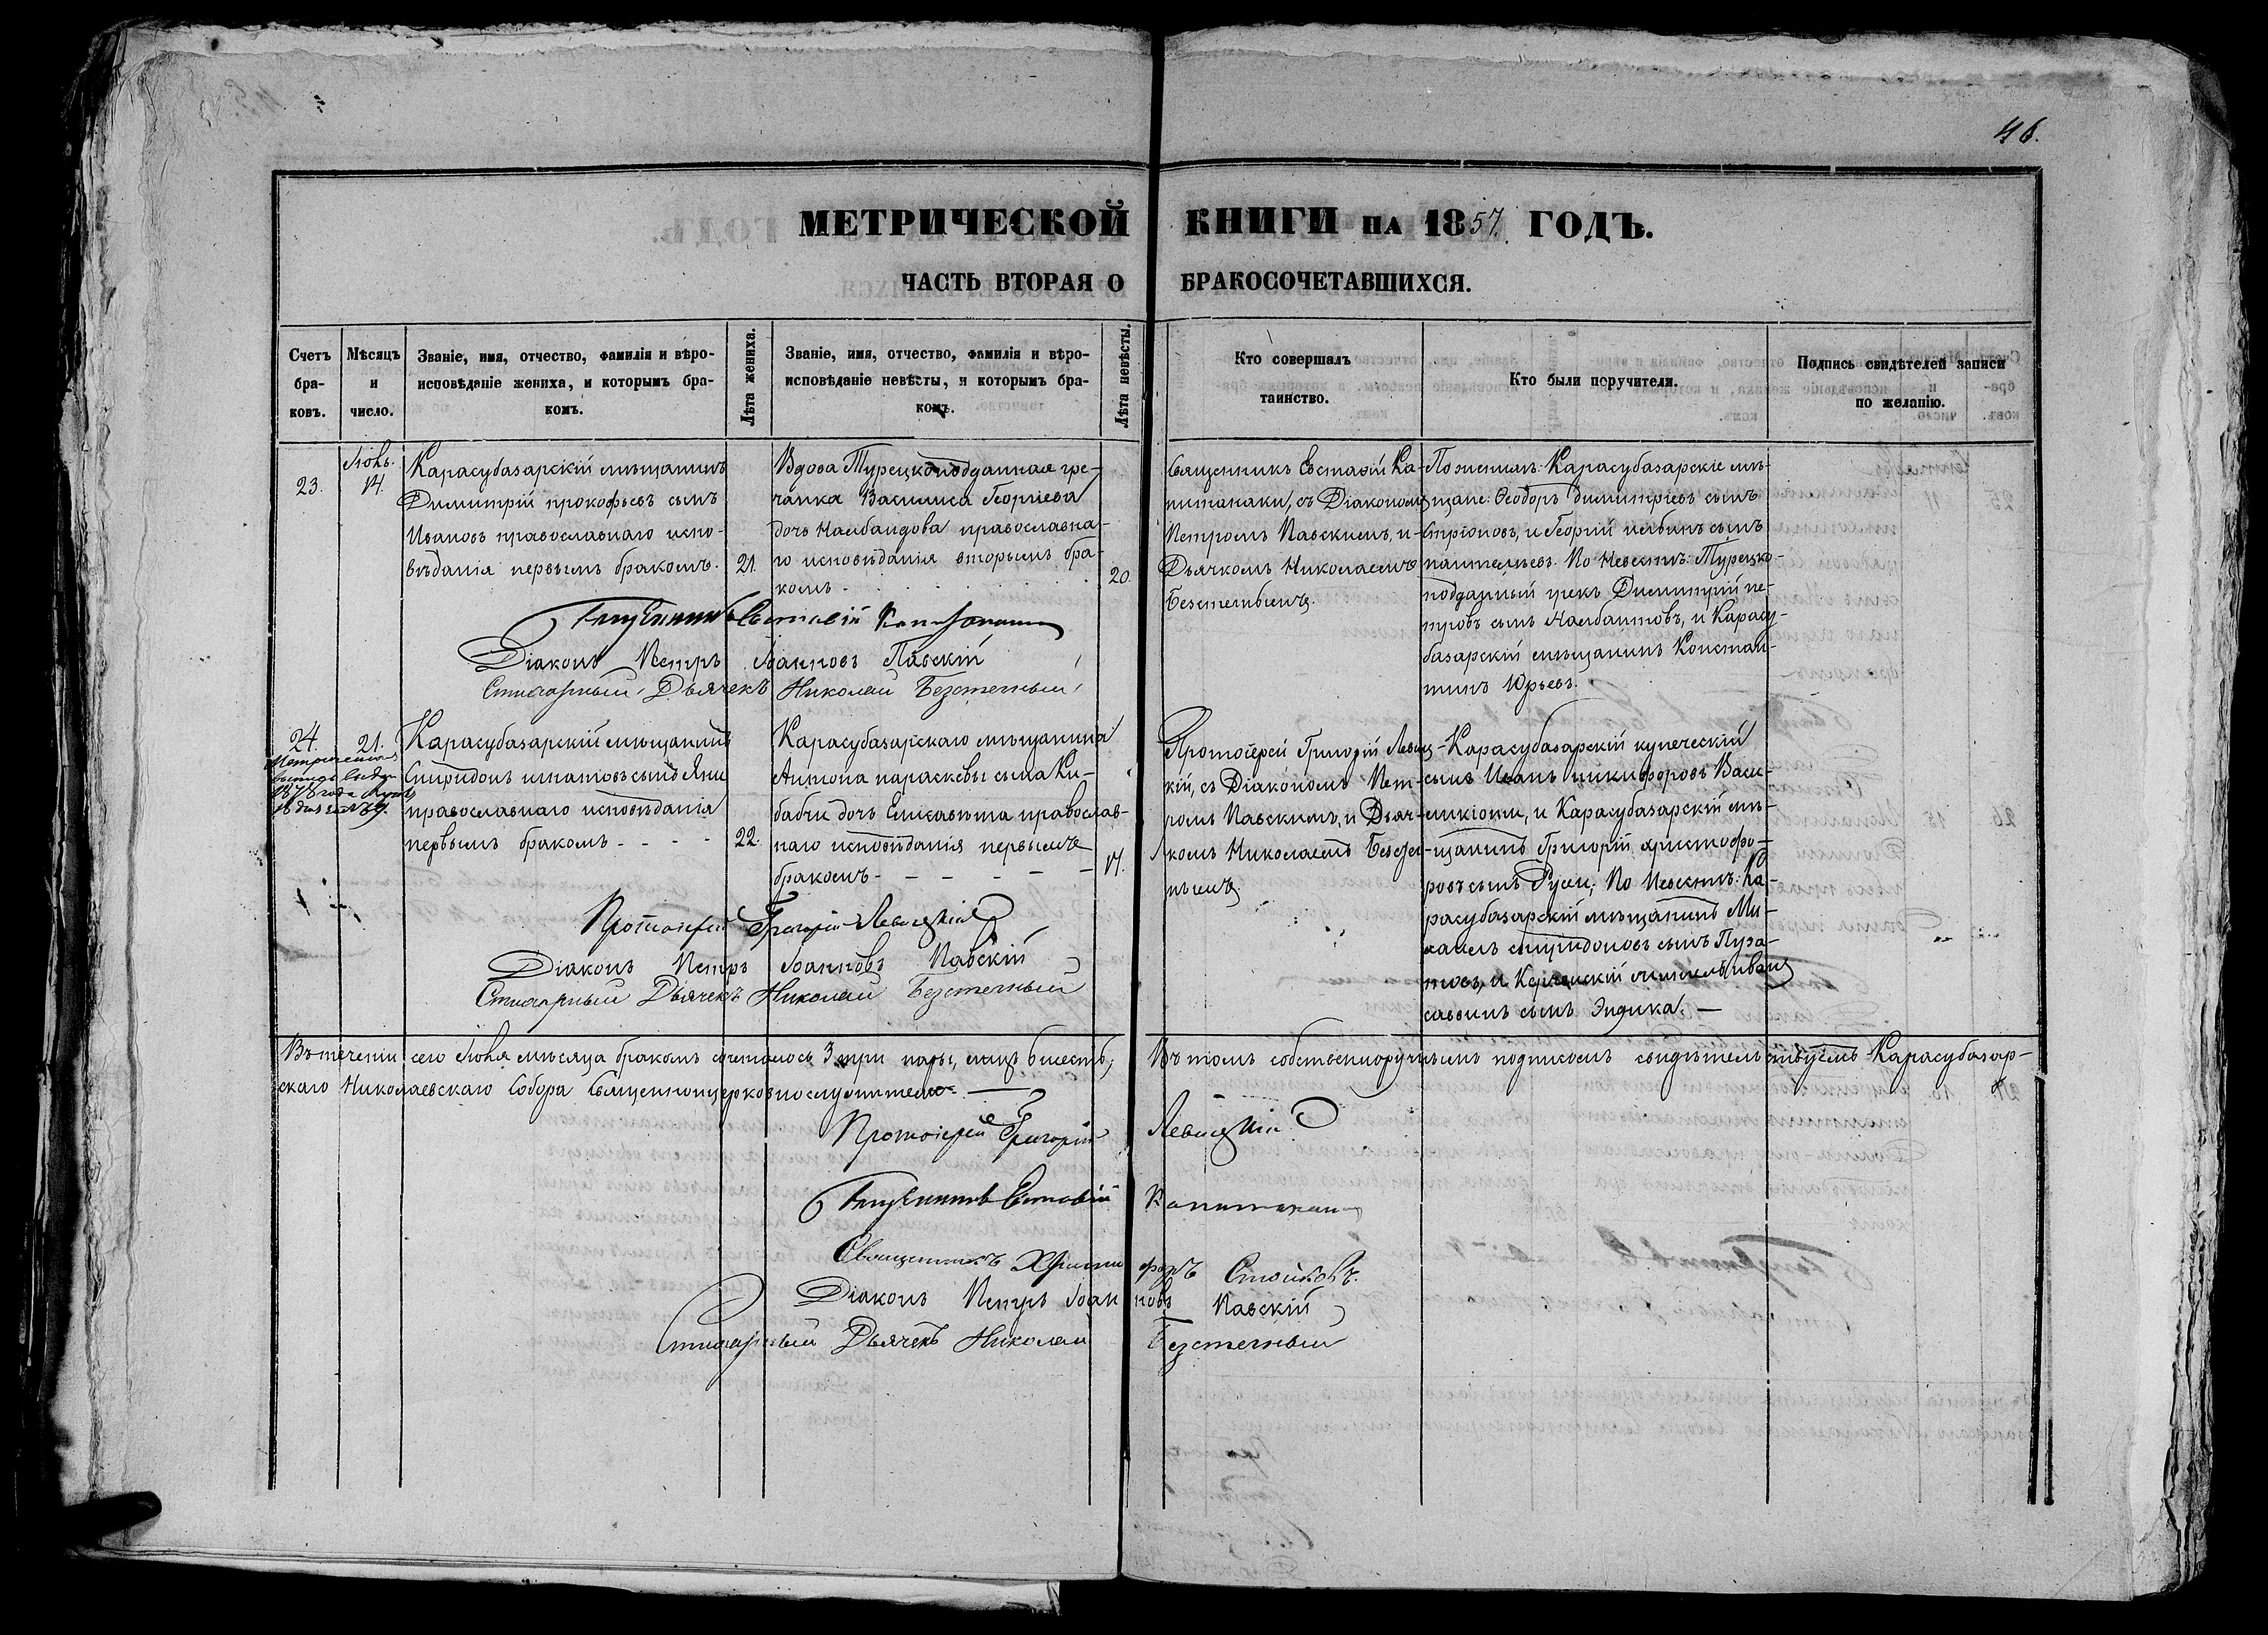 46.
МЕТРИЧЕСКОЙ КНИГИ НА 1857. ГОДЪ.
ЧАСТЬ ВТОРАЯ О БРАКОСОЧЕТАВШИХСЯ.
Счетъ бра-ковъ.
Мѣсяцъ и число.
Званіе, имя, отчество, фамилія и вѣро-
исповѣданіе жениха, и которымъ бра-
комъ.
Лѣта жениха.
Званіе, имя, отчество, фамилія и вѣро-
исповѣданіе невѣсты, и которымъ бра-
комъ.
Лѣта невѣсты.
Кто совершалъ
таинство.
Кто были поручители.
Подпись свидѣтелей записи
по желанію.
23.
Іюнь.
14.
Карасубазарскій мѣщанинъ
Димитрій прокофьевъ сынъ
Ивановъ православнаго испо-
вѣданія первымъ бракомъ.
21.
Вдова Турецкоподданная гре-
чанка Василиса Георгіева
дочь Налбандова православна-
го исповѣданія вторымъ бра-
комъ
20.
Священникъ Евстафій Ка-
питанаки, съ Діакономъ
Петромъ Павскимъ, и
Дьячкомъ Николаемъ
Безстечнымъ.
По женихѣ: Карасубазарскіе мѣ-
щане: Ѳеодоръ димитріевъ сынъ
и Георгій сынъ
По Невестѣ: Турецко-
подданный грекъ Димитрій пе-
тровъ сынъ Налбантовъ, и Карасу-
базарскій мѣщанинъ Констан-
тинъ Юрьевъ.
Священникъ Евстафій Капитанаки
Діаконъ Петръ Іоанновъ Павскій
Стихарный Дьячекъ Николай Безстечный
24.
21.
1878 года
Карасубазарскій мѣщанинъ
Спиридонъ игнатовъ сынъ Яни
православнаго исповѣданія
первымъ бракомъ
22.
Карасубазарскаго мѣщанина
Антона параскевы сына Ки-
бабчи дочь Елисавета православ-
наго исповѣданія первымъ
бракомъ
17.
Протоіерей Григорій Левиц-
кій, съ Діакономъ Пет-
ромъ Павскимъ, и Дьяч-
комъ Николаемъ Безсте-
чнымъ.
Карасубазарскій купеческій
сынъ Иванъ никифоровъ Васи-
ликіоти, и Карасубазарскій мѣ-
щанинъ Григорій христофо-
ровъ сынъ Руси; По Невестѣ: Ка-
расубазарскій мѣщанинъ Ми-
хаилъ спиридоновъ сынъ Пуза-
товъ, и Керченскій житель Иванъ
саввинъ сынъ
Протоіерей Григорій Левицкій
Діаконъ Петръ Іоанновъ Павскій
Стихарный Дьячекъ Николай Безстечный
Въ теченіи сего Іюня мѣсяца бракомъ сочеталось 3 три пары, лицъ 6 шесть; Въ томъ собственноручнымъ подписомъ свидѣтельствуемъ Карасубазар-
скаго Николаевскаго Собора Священноицерковнослужители
Протоіерей Григорій Левицкій
Священникъ Евстафій Капитанаки
Священникъ Христофоръ Стойковъ.
Діаконъ Петръ Іоанновъ Павскій
Стихарный Дьячекъ Николай Безстечный